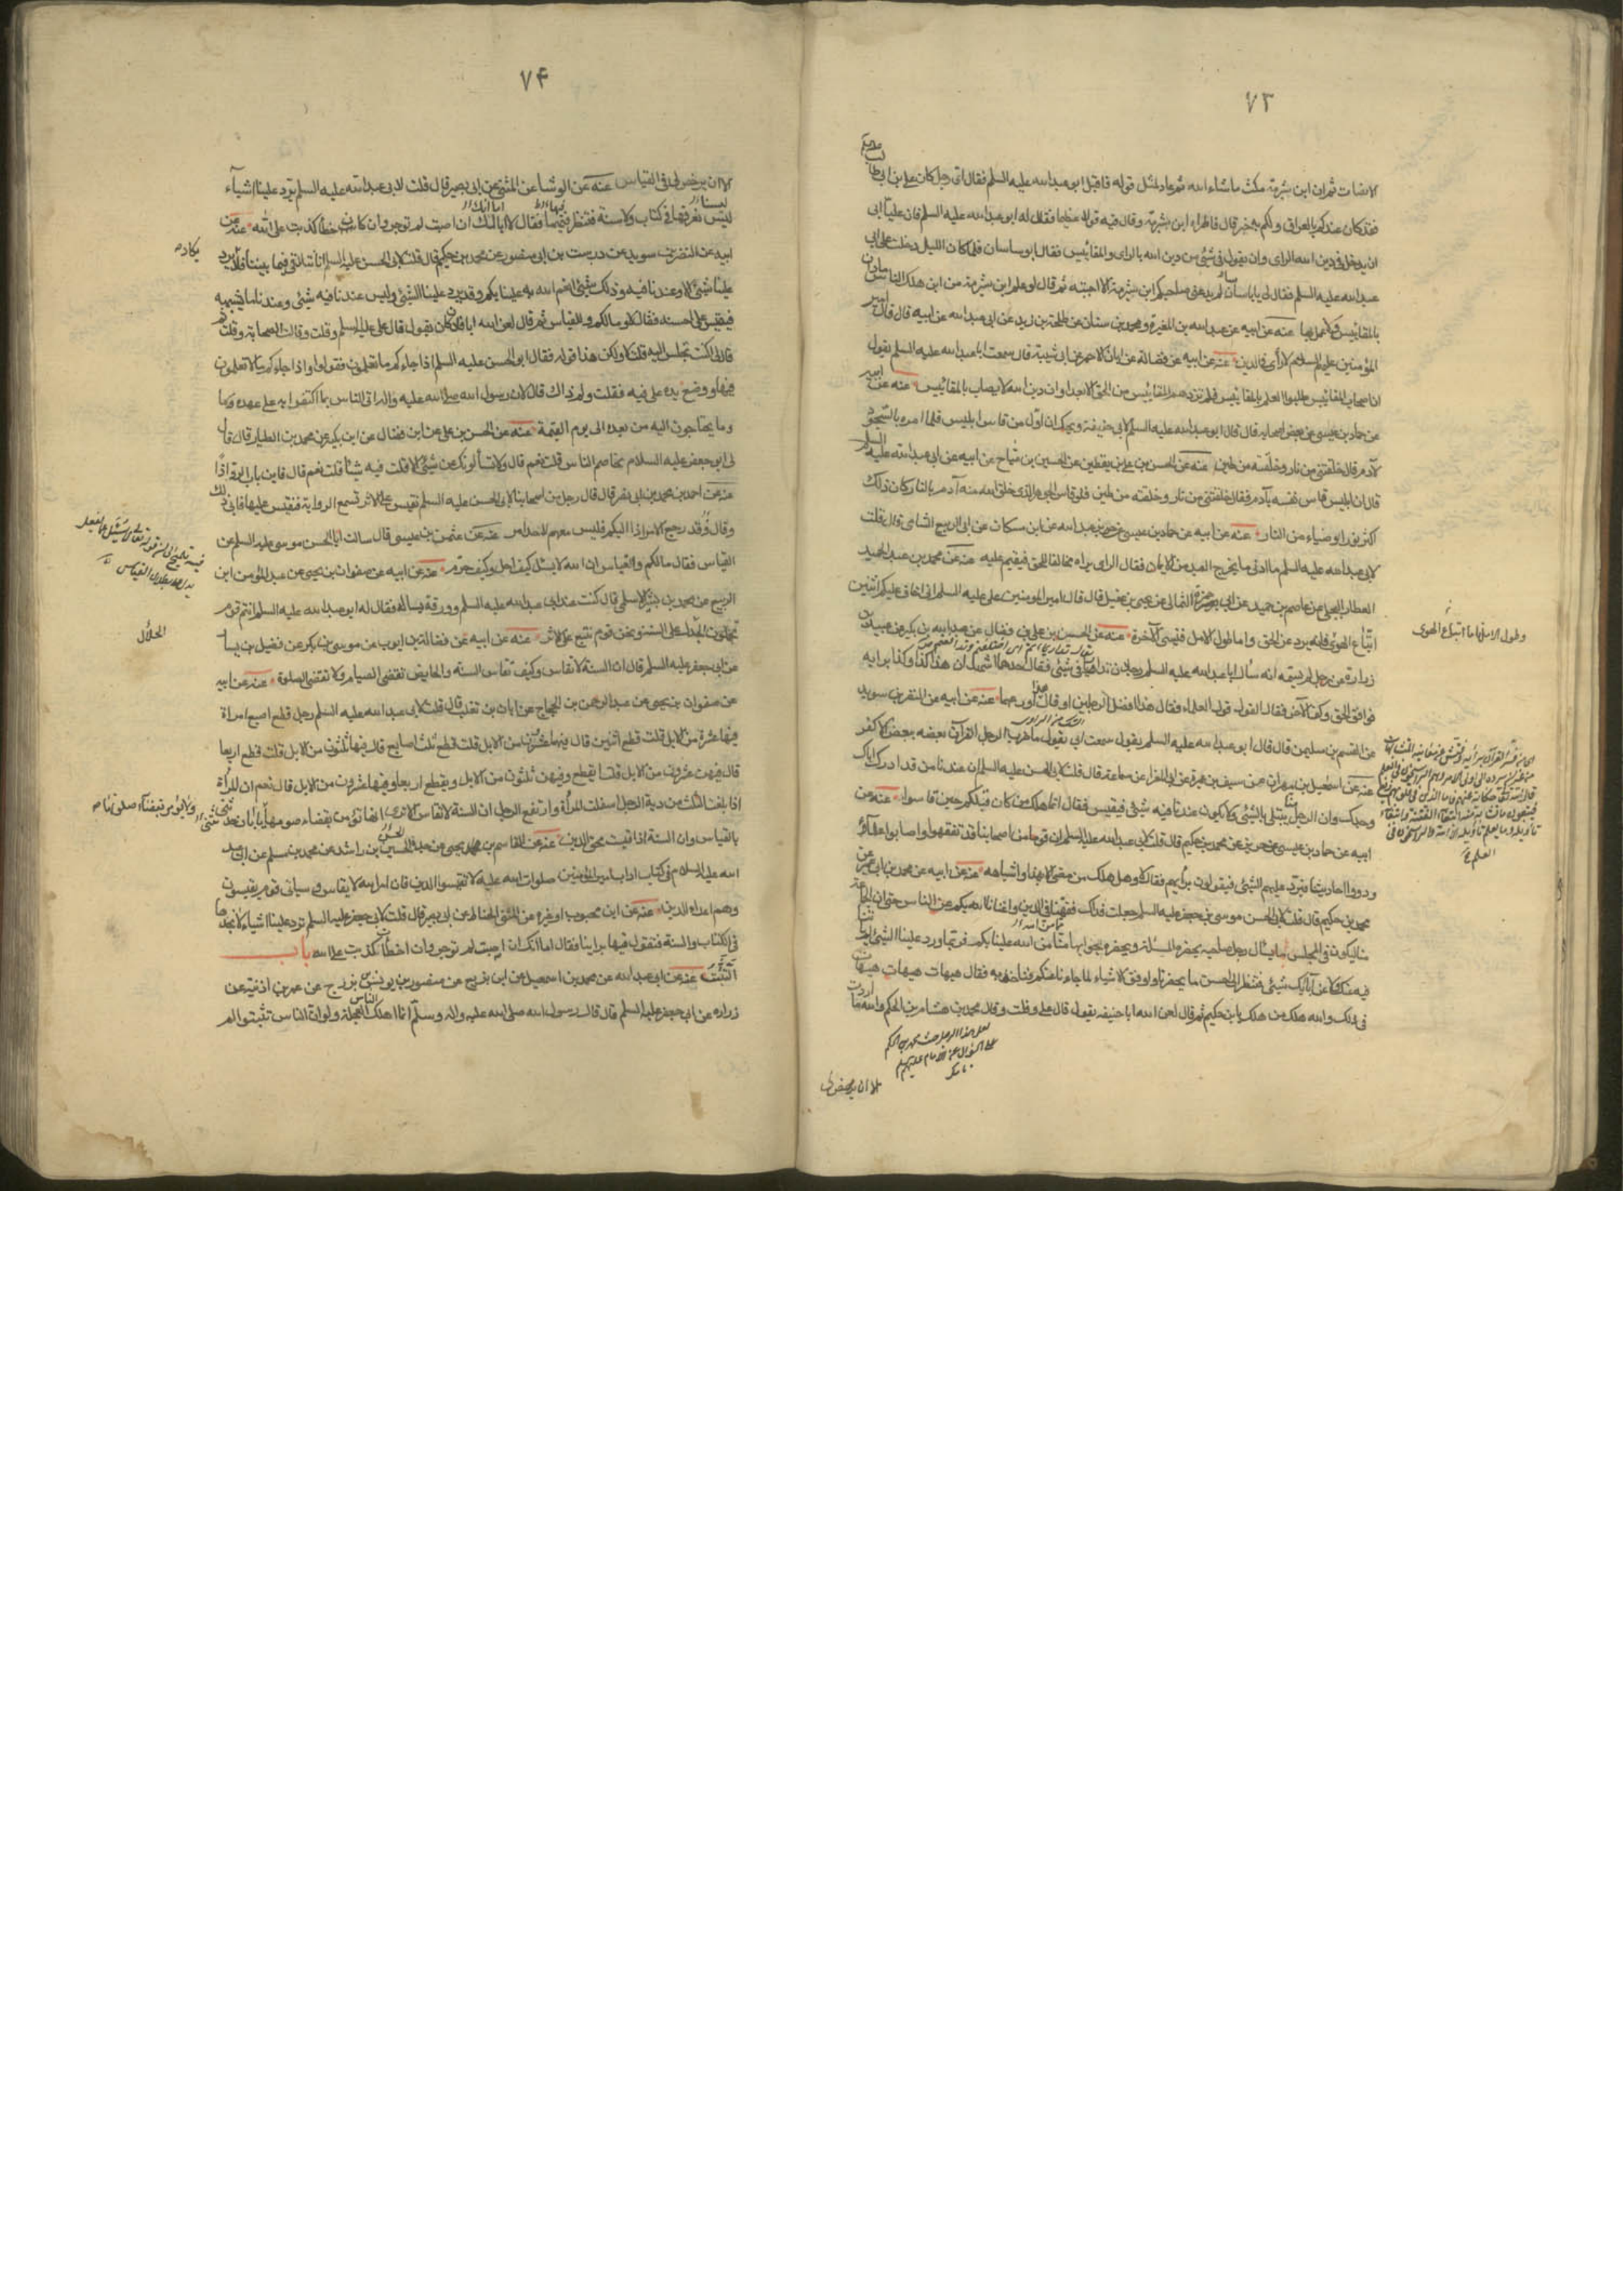 ٧٣
لانصات ثم ان ابن شبرمة مكث ما شاء الله ثم عاد لمثل قوله فاقبل ابو عبدالله عليه السلم فقال اى رجل كان على بن ابى طالب
فقد كان عندكم بالعراق ولكم به خبر قال فاطراه ابن شبرمة وقال فيه قولا عظيما فقال له ابو عبدالله عليه السلم فان عليا ابى
ان يدخل فى دين الله الراى وان يقول فى شئ من دين الله بالراى والمقائيس فقال ابو ساسان فلما كان الليل دخلت على ابى
عبدالله عليه السلم فقال لى يابا ساسان لم يدعنى صاحبكم ابن شبرمة الا اجبته ثم قال لو علم ابن شبرمة من اين هلك الناس مادان
بالمقائيس ولا عمل بها عنه عن ابيه عن عبدالله بن المغيرة ومحمد بن سنان عن طلحة بن زيد عن ابى عبدالله عن ابيه قال قال امير
المؤمنين عليهم السلام لا رأى فى الدين عنه عن ابيه عن فضالة عن ابان الاحمر عن ابى شيبة قال سمعت ابا عبدالله عليه السلم يقول
ان اصحاب المقائيس طلبوا العلم بالمقائيس فلم تزدهم المقائيس من الحق الا بعدا وان دين الله لا يصاب بالمقائيس عنه عن ابيه
عن حماد بن عيسى عن بعض اصحابه قال قال ابو عبدالله عليه السلم لابى حنيفة ويحك ان اول من قاس ابليس فلما امره بالسجود
لآدم قال خلقتنى من نار وخلقته من طين عنه عن الحسن بن على بن يقطين عن الحسين بن مياح عن ابيه عن ابى عبدالله عليه السلم
قال ان ابليس قاس نفسه بآدم فقال خلقتنى من نار وخلقته من طين فلو قاس الجوهر الذى خلق الله منه آدم بالنار كان ذلك
اكثر نورا وضياء من النار عنه عن ابيه عن حماد بن عيسى عن حريز بن عبدالله عن ابن مسكان عن ابى الربيع الشامى قال قلت
لابى عبدالله عليه السلم ما ادنى ما يخرج العبد من الايمان فقال الراى يراه مخالفا للحق فيقيم عليه عنه عن محمد بن عبدالحميد
العطار البجلى عن عاصم بن حميد عن ابى حمزة الثمالى عن يحيى بن عقيل قال قال امير المومنين على عليه السلم انى اخاف عليكم اثنين
اتباع الهوى فانه يرد عن الحق واما طول الامل فينسى الآخرة عنه عن الحسن بن على بن فضال عن عبدالله بن بكير عن عبيد بن
زرارة عن رجل لم يسمه انه سأل ابا عبدالله عليه السلم رجلان تدارءا فى شئ فقال احدهما اشهد ان هذا كذا وكذا برايه
فوافق الحق وكف الآخر فقال القول قول العلماء فقال هذا افضل الرجلين او قال اورعهما عنه عن ابيه عن النضر بن سويد
عن القسم بن سليمن قال قال ابو عبدالله عليه السلم يقول سمعت ابى يقول ما ضرب الرجل القرآن بعضه ببعض الا كفر
عنه عن اسمعيل بن مهران عن سيف بن عميرة عن ابى المغرا عن سماعة قال قلت لابى الحسن عليه السلم ان عندنا من قد ادرك اباك
وجدك وان الرجل يبتلى بالشئ لا يكون عندنا فيه شئ فيقيس فقال انما هلك من كان قبلكم حين قاسوا عنه عن
ابيه عن حماد بن عيسى عن حريز عن محمد بن حكيم قال قلت لابى عبدالله عليه السلم ان قوما من اصحابنا قد تفقهوا واصابوا علما
ورووا احاديث فيرد عليهم الشئ فيقولون برأيهم فقال لا وهل هلك من مضى الا بهذا واشباهه عنه عن ابيه عن محمد بن ابى عمير عن
محمد بن حكيم قال قلت لابى الحسن موسى بن جعفر عليه السلم جعلت فداك فقهنا فى الدين واغنانا الله بكم عن الناس حتى ان الجماعة
منا ليكون فى المجلس ما يسأل رجل صاحبه يحضره المسئلة ويحضره جوابها منّا من الله علينا بكم فربما ورد علينا الشئ لم يأتنا
فيه عنك ولا عن آبائك شئ فننظر الى احسن ما يحضرنا واوفق الاشياء لما جاءنا عنكم فناخذ به فقال هيهات هيهات
فى ذلك والله هلك من هلك يا بن حكيم ثم قال لعن الله ابا حنيفة يقول قال على وقلت وقال محمد بن حكيم لهشام بن الحكم والله ما اردت
وطول الامل فاما اتباع الهوى
الا ان يرخص لى
٧۴
الا ان يرخص لى فى القياس عنه عن الوشا عن المثنى عن ابى بصير قال قلت لابى عبدالله عليه السلم ترد علينا اشياء
ليس نعرفها فى كتاب ولا سنة فننظر فيها فقال لا اما انك ان اصبت لم توجر وان كان خطأ كذبت على الله عنه عن
ابيه عن النضر بن سويد عن درست بن ابى منصور عن محمد بن حكيم قال قلت لابى الحسن عليه السلم انا نتلاقى فيما بيننا فلا يرد
يكاد
علينا شئ الا وعندنا فيه شئ وذلك شئ انعم الله به علينا بكم وقد يرد علينا الشئ وليس عندنا فيه شئ وعندنا ما يشبهه
فنقيس على احسنه فقال لا وما لكم وللقياس ثم قال لعن الله ابا فلان كان يقول قال على عليه السلم وقلت وقالت الصحابة وقلت ثم
قال لى اكنت تجلس اليه قلت لا ولكن هذا قوله فقال ابو الحسن عليه السلم اذا جاءكم ما تعلمون فقولوا واذا جاءكم ما لا تعلمون
فها ووضع يده على فيه فقلت ولم ذاك قال لان رسول الله صلى الله عليه واله اتى الناس بما اكتفوا به على عهده وما
وما يحتاجون اليه من بعده الى يوم القيمة عنه عن الحسن بن على عن ابن فضال عن ابن بكير عن محمد بن الطيار قال قال
لى ابو جعفر عليه السلام تخاصم الناس قلت نعم قال ولا يسألونك عن شئ الا قلت فيه شيئا قلت نعم قال فاين باب الرد اذًا
عنه عن احمد بن محمد بن ابى نصر قال قال رجل من اصحابنا لابى الحسن عليه السلم نقيس على الاثر نسمع الرواية فنقيس عليها فابى ذلك
وقال قد رجع الامر اذا اليكم فليس معهم لاحد امر عنه عن عثمن بن عيسى قال سالت ابا الحسن موسى عليه السلم عن
القياس فقال ما لكم والقياس ان الله لا يسئل كيف احل وكيف حرم عنه عن ابيه عن صفوان بن يحيى عن عبدالمؤمن ابن
الربيع عن محمد بن بشر الاسلمى قال كنت عند ابى عبدالله عليه السلم وورقة يساله فقال له ابو عبدالله عليه السلم انتم قوم
تحملون الحلال على السنة ونحن قوم نتبع على الاثر عنه عن ابيه عن فضالة بن ايوب عن موسى بن بكر عن فضيل بن يسار
الحلال
عن ابى جعفر عليه السلم قال ان السنة لا تقاس وكيف تقاس السنة والحايض تقضى الصيام ولا تقضى الصلوة عنه عن ابيه
عن صفوان بن يحيى عن عبدالرحمن بن الحجاج عن ابان بن تغلب قال قلت لابى عبدالله عليه السلم رجل قطع اصبع امراة
فيها عشرة من الابل قلت قطع اثنين قال فيهما عشرون من الابل قلت قطع ثلث اصابع قال فيها ثلثون من الابل قلت قطع اربعا
قال فيهن عشرون من الابل قلت ايقطع ثلثا وفيهن ثلثون من الابل ويقطع اربعا وفيها عشرون من الابل قال نعم ان المرأة
اذا بلغت الثلث من دية الرجل سفلت المرأة وارتفع الرجل ان السنة لا تقاس الا ترى انها تؤمر بقضاء صومها
ولا تؤمر بقضاء صلوتها
بالقياس وان السنة اذا قيست محق الدين عنه عن القاسم بن يحيى عن جده الحسن بن راشد عن محمد بن مسلم عن ابى عبد
الله عليه السلام فى كتاب اداب امير المؤمنين صلوات الله عليه لا تقيسوا الدين فان امر الله لا يقاس وسياتى قوم يقيسون
وهم اعداء الدين عنه عن ابن محبوب او غيره عن المثنى الحناط عن ابى بصير قال قلت لابى جعفر عليه السلم ترد علينا اشياء لا نجدها
فى الكتاب والسنة فنقول فيها براينا فقال اما انك ان اصبت لم توجر وان اخطأت كذبت على الله باب
التثبت عنه عن ابى عبدالله عن محمد بن اسمعيل عن ابن بزيع عن منصور بن يونس بزرج عن عمر بن اذينة عن
زراره عن ابى جعفر عليه السلم قال قال رسول الله صلى الله عليه واله وسلم انما اهلك الناس العجلة ولو ان الناس تثبتوا لم